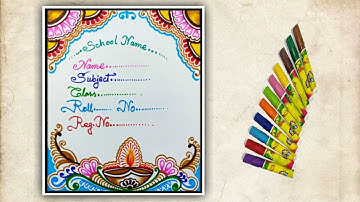 ...School Name......
Name..............
Subject..............
Class..............
Roll....... No..........
Reg.No............